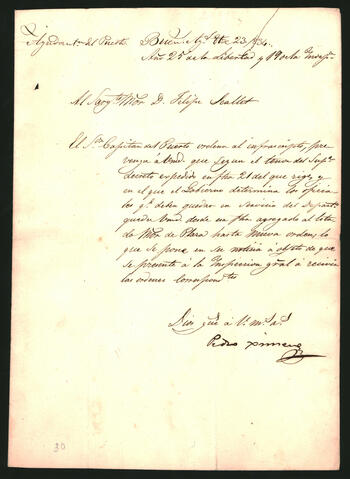 Ayudant.ª del Puerto
Buen.s Ay.s 23/834.
Año 25 de la Libertad y 19 de la Indep.ª
Al Sarg.to Mor D. Felipe
El S.or Capitan del Puerto ordena al infrascripto, pre-
venga a Vmd. que segun el tenor del Sup.or
decreto expedido en fha 21 del que rige, y
en el que el Gobierno determina los oficia-
les q.e deben quedar en Servicio del Departº
queda Vmd. desde esta fha agregado al Esta-
do Mor de Plaza hasta nueva orden; lo
que se pone en su noticia a objeto de que
se presente à la Inspeccion gral à recivir
las ordenes correspond.tes
Dios gue à V. m.s a.s
Pedro Ximeno
30